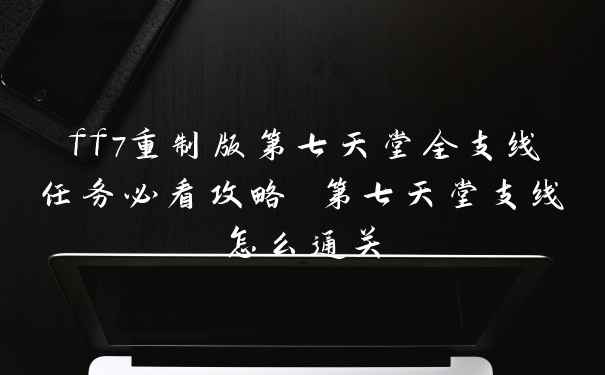 ff7重制版第七天堂全支线
任务必看攻略 第七天堂支线
怎么通关